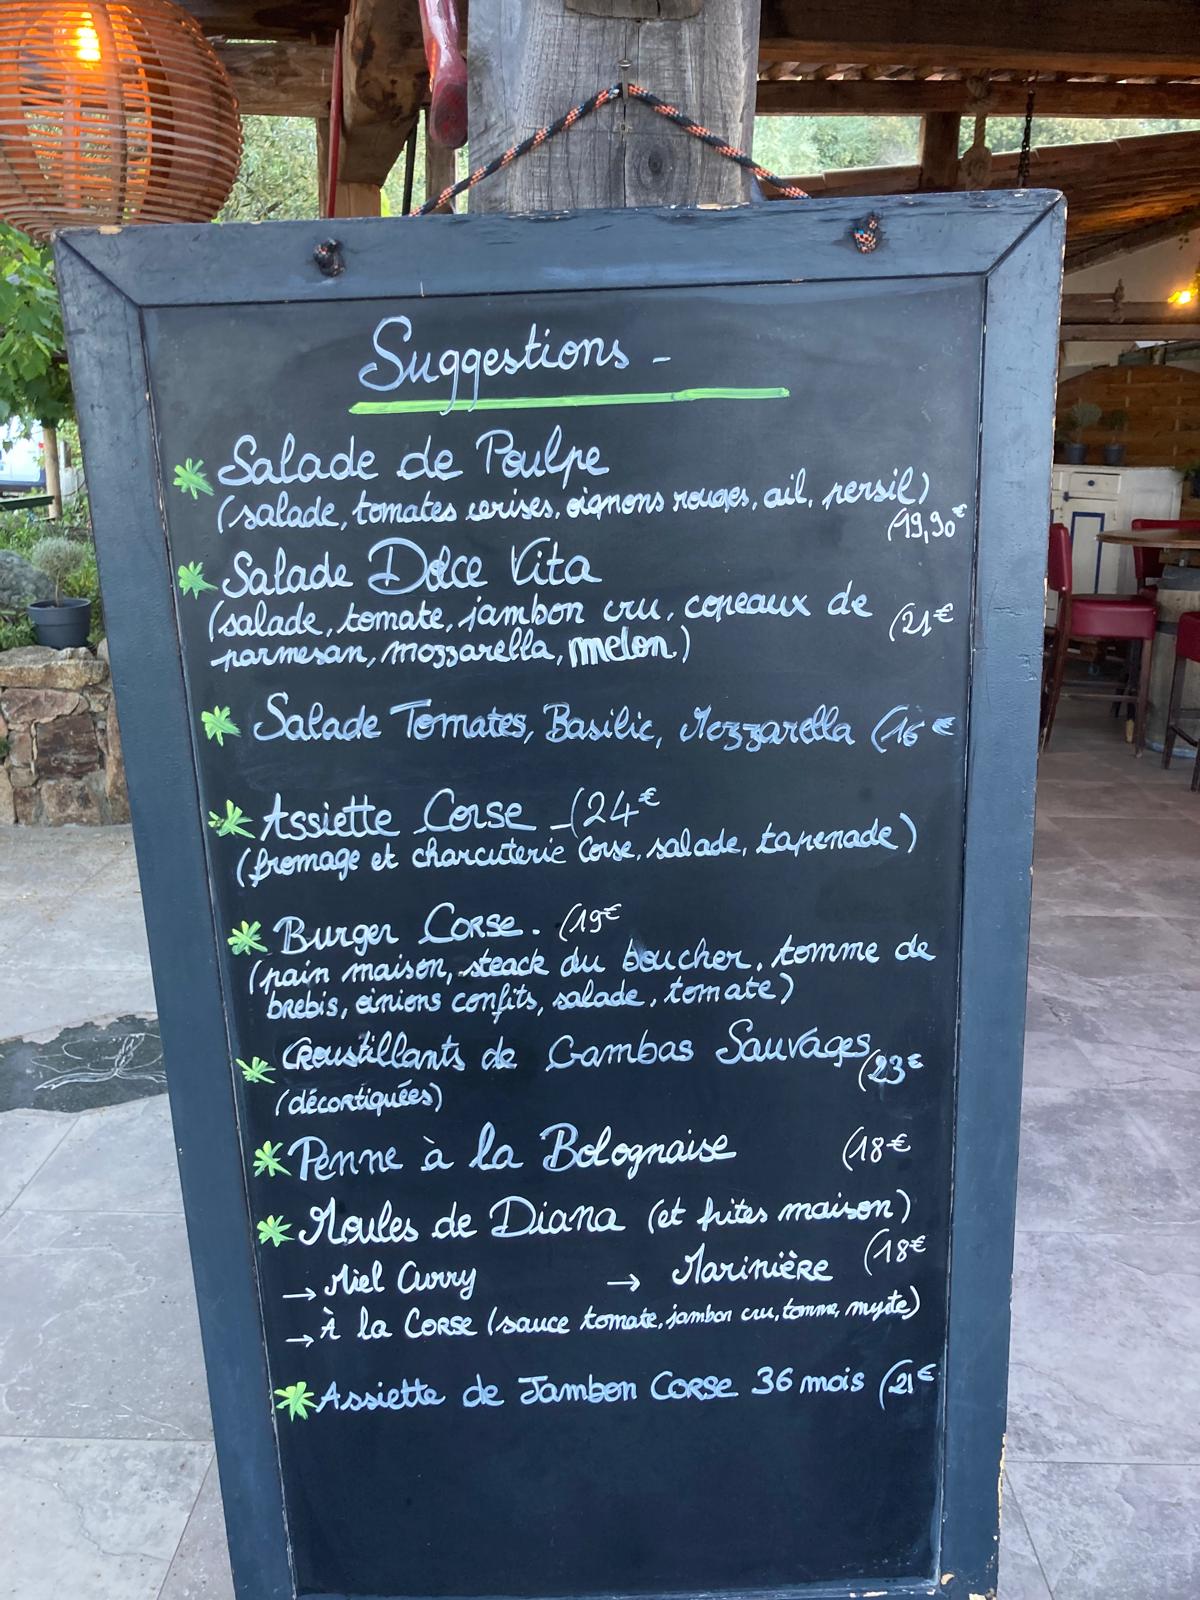 Suggestions -
Salade de Poulpe
(salade, tomates cerises, oignons rouges, ail, persil)
(19,90€
Salade Dolce Vita
(salade, tomate, jambon cru, copeaux de
(21€
parmesan, mozzarella, melon)
Salade Tomates, Basilic, Mozzarella (16€
Assiette Corse (24€
(fromage et charcuterie Corse, salade, tapenade)
Burger Corse. (19€
(pain maison, steack du boucher, tomme de
brebis, oinions confits, salade, tomate)
Croustillants de Gambas Sauvages
(23€
(décortiquées)
Penne à la Bolognaise (18€
Moules de Diana (et frites maison)
(18€
→ Miel Curry → Marinière
→ À la Corse (sauce tomate, jambon cru, tomme, myrte)
Assiette de Jambon Corse 36 mois (21€